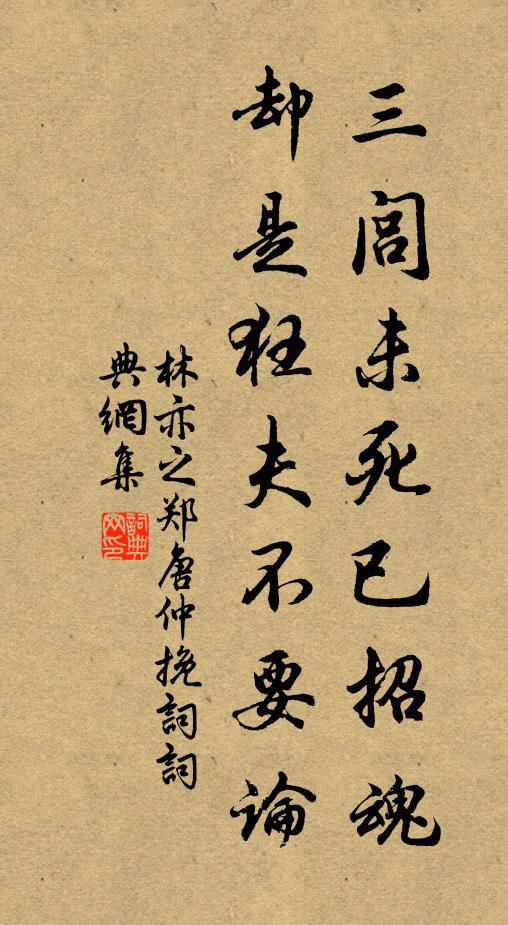 三闾未死已招魂
却是狂夫不要論
林亦之郑唐仲挽詞詞
典網集
詞典
网印